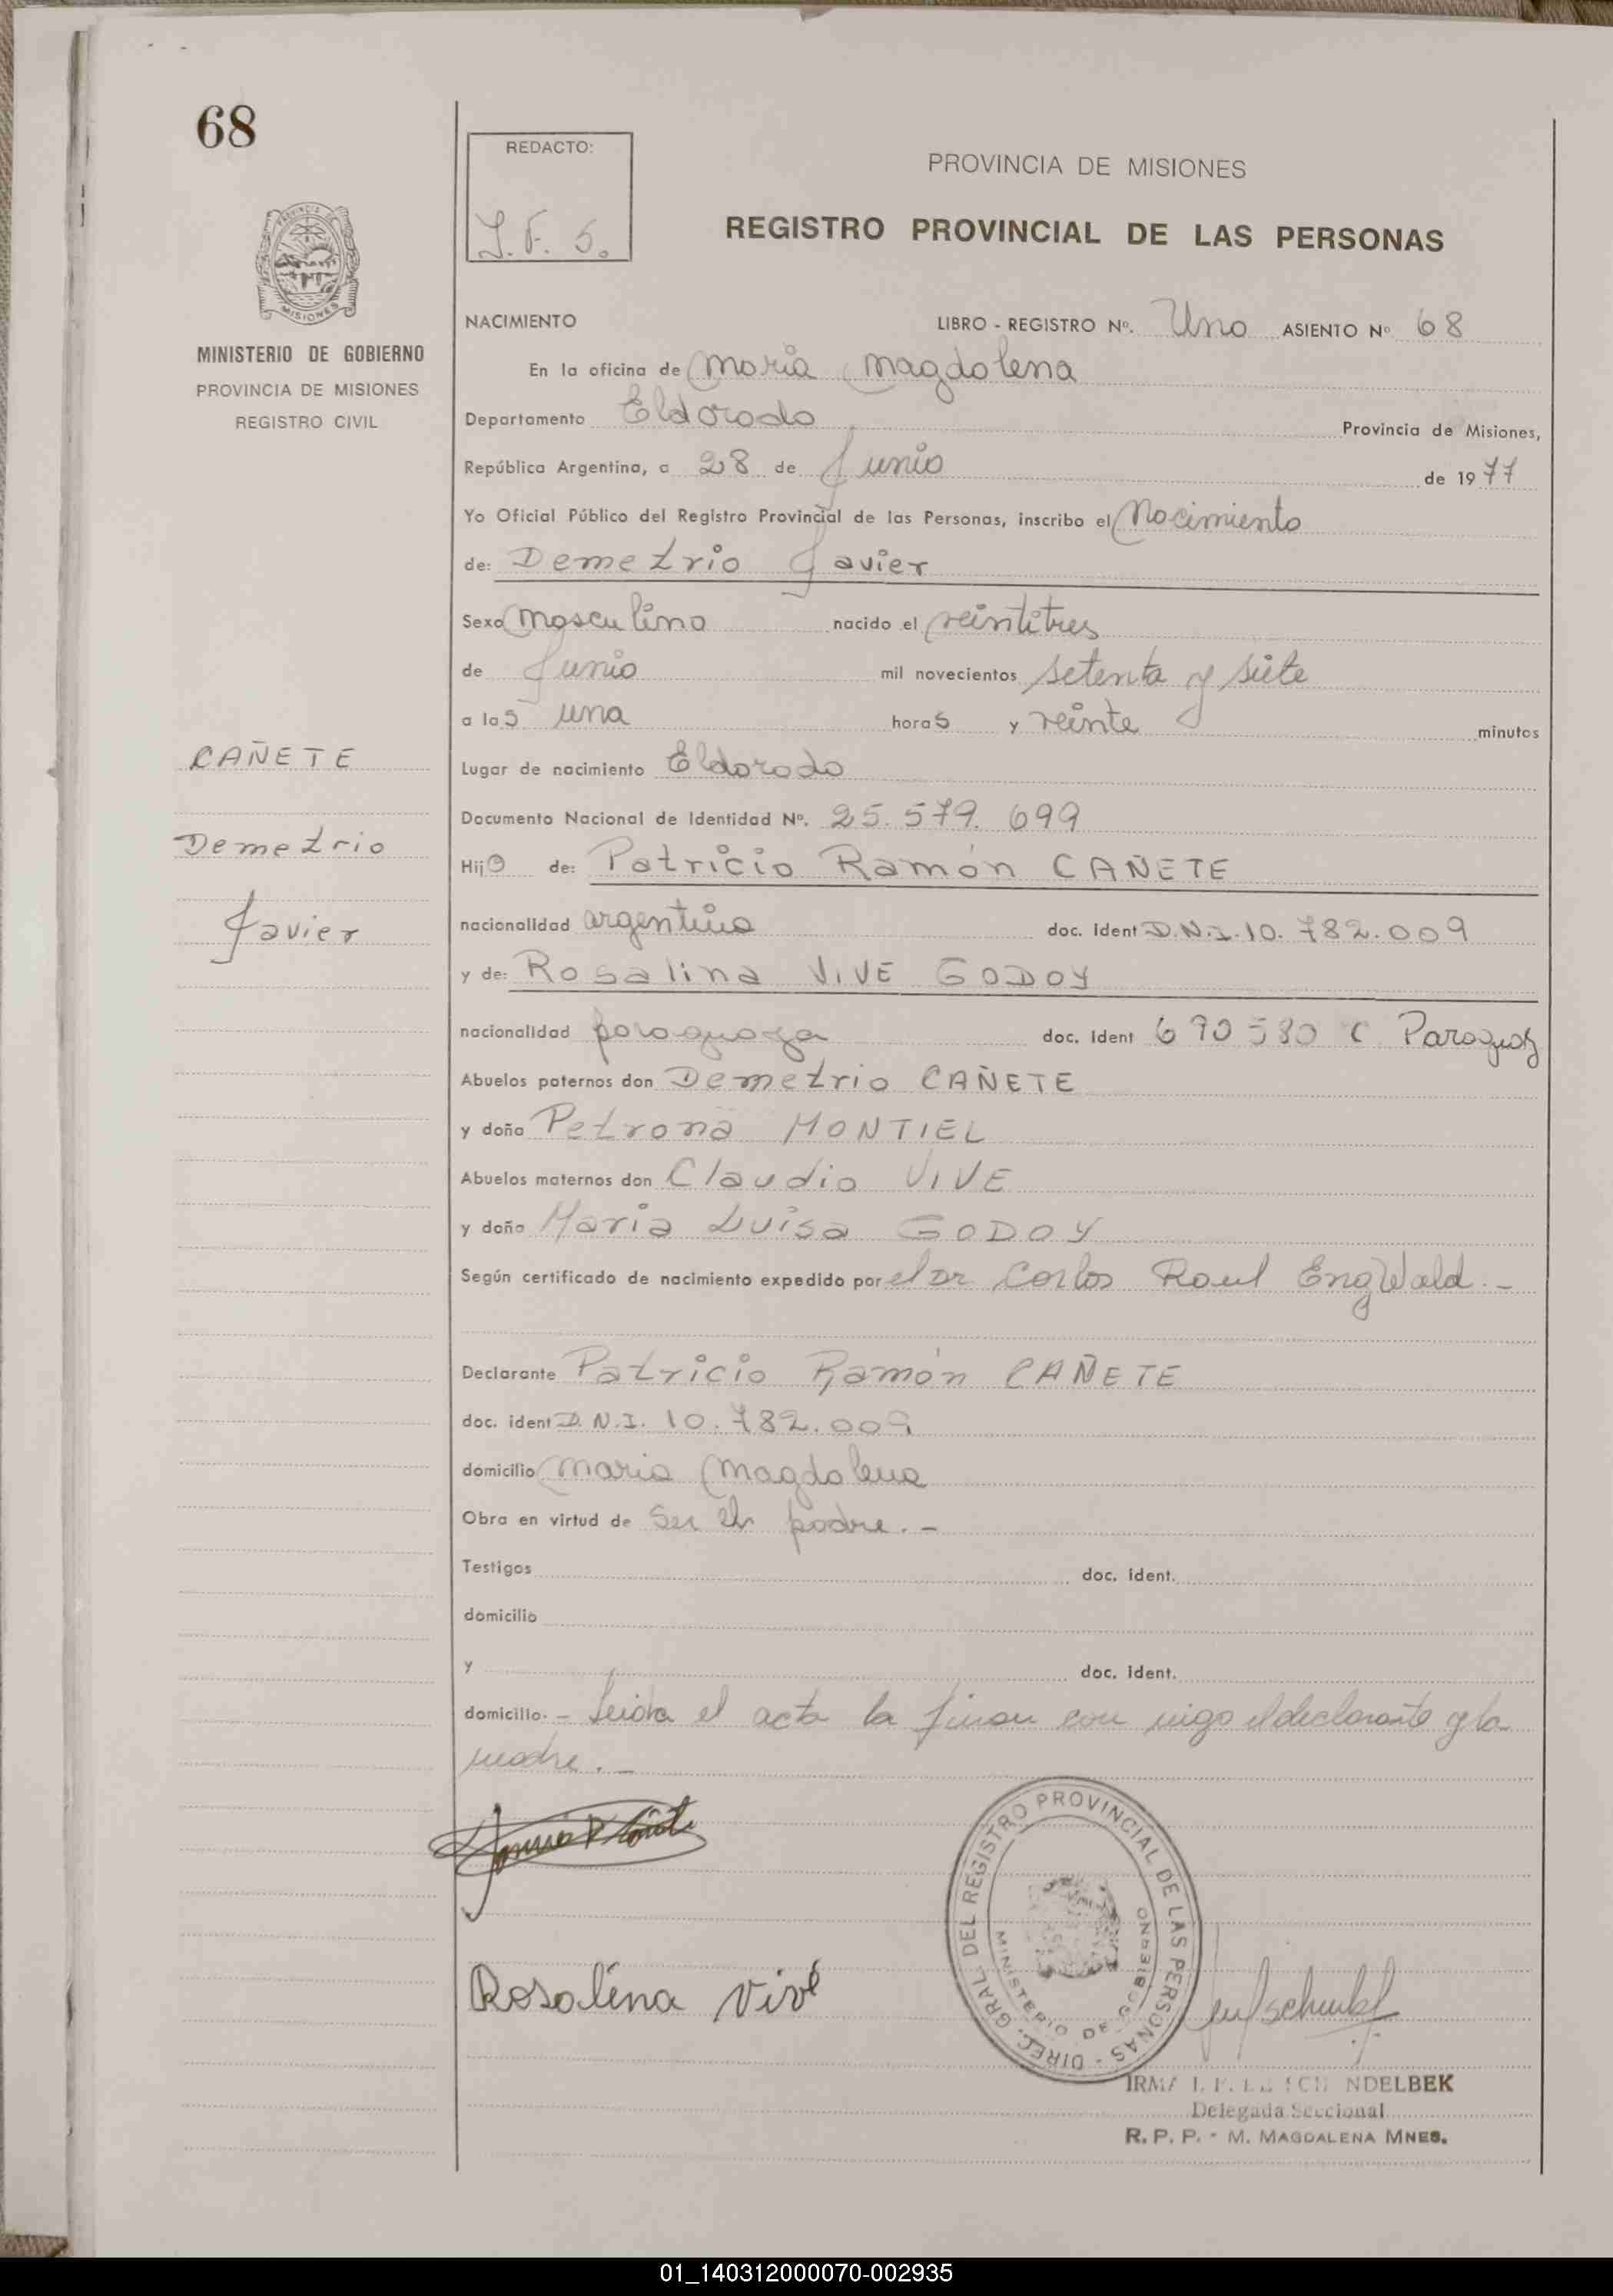 68
REDACTO:
I. F. S.
PROVINCIA DE MISIONES
REGISTRO PROVINCIAL DE LAS PERSONAS
MISIONES
MINISTERIO DE GOBIERNO
PROVINCIA DE MISIONES
REGISTRO CIVIL
NACIMIENTO LIBRO - REGISTRO Nº. Uno ASIENTO Nº 68
En la oficina de Maria Magdalena
Departamento Eldorado Provincia de Misiones,
República Argentina, a 28 de Junio de 1977
Yo Oficial Público del Registro Provincial de las Personas, inscribo el Nacimiento
de: Demetrio Javier
Sexo Masculino nacido el veintitres
de Junio mil novecientos setenta y siete
a las una horas y veinte minutos
CAÑETE
Demetrio
Javier
Lugar de nacimiento Eldorado
Documento Nacional de Identidad Nº. 25.579.699
Hijo de: Patricio Ramón CAÑETE
nacionalidad argentino doc. ident D.N.I. 10.782.009
y de: Rosalina VIVE GODOY
nacionalidad paraguaya doc. ident 690 580 C Paraguay
Abuelos paternos don Demetrio CAÑETE
y doña Petrona MONTIEL
Abuelos maternos don Claudio VIVE
y doña Maria Luisa GODOY
Según certificado de nacimiento expedido por el Dr Carlos Raul EngWald.-
Declarante Patricio Ramón CAÑETE
doc. ident D.N.I. 10.782.009
domicilio Maria Magdalena
Obra en virtud de ser el padre.-
Testigos doc. ident.
domicilio
y doc. ident.
domicilio.- Leida el acta la firman con migo el declarante y la
madre.-
DIREC. GRAL. DEL REGISTRO PROVINCIAL DE LAS PERSONAS -
MINISTERIO DE GOBIERNO
Rosalina Vive
IRMA NDELBEK
Delegada Seccional
R. P. P. - M. MAGDALENA MNES.
01_140312000070-002935